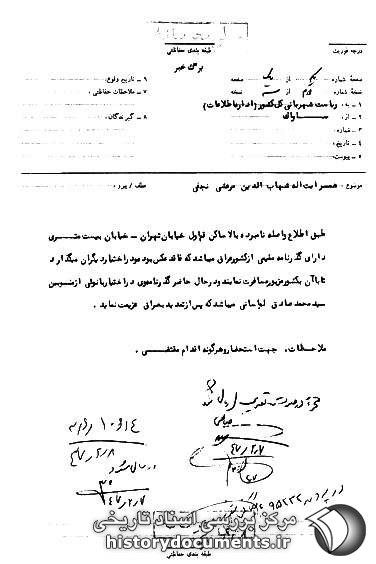 طبقه بندی حفاظتی
درجه فوریت
برگ خبر
شماره صفحه یک از یک صفحه
نسخه شماره دوم از سه نسخه
۱ - به : ریاست شهربانی کل کشور (اداره اطلاعات)
۲ - از : ساواک
۳ - شماره :
۴ - تاریخ :
۵ - پیوست :
۶ - تاریخ وقوع :
۷ - ملاحظات حفاظتی :
۸ - گیرندگان :
موضوع : همسر ایت اله شهاب الدین مرعشی نجفی
عطف / پیرو :
طبق اطلاع واصله نامبرده بالا ساکن قم اول خیابان تهران – خیابان بیست متری
دارای گذرنامه مقیمی از کشور عراق میباشد که فاقد عکس بوده و در اختیار دیگران میگذارد
تا با آن بکشور مزبور مسافرت نمایند و در حال حاضر گذرنامه وی در اختیار بانوئی از منسوبین
سید محمد صادق لواسانی میباشد که پس از تمدید بعراق عزیمت نماید .
ملاحظات . جهت استحضار و هرگونه اقدام مقتضی .
۴۷/۲/۷
۴۷/۲/۸
۴۷/۲/۷
مرکز بررسی اسناد تاریخی
historydocuments.ir
طبقه بندی حفاظتی